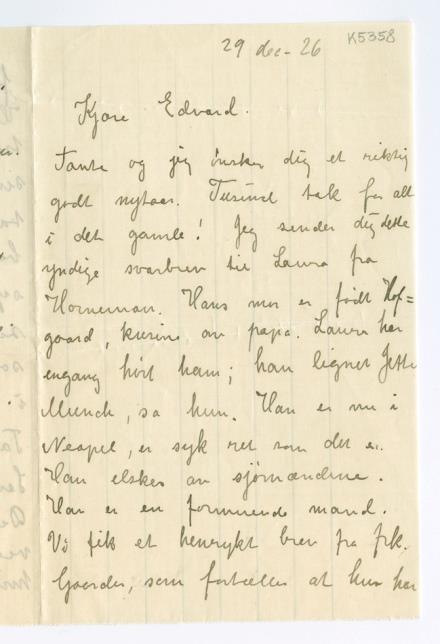 29 dec - 26
K5358
Kjære Edvard.
Tante og jeg ønsker dig et riktig
godt nytaar. Tusind tak for alt
i det gamle! Jeg sender dig dette
yndige svarbrev til Laura fra
Horneman. Hans mor er født Hof=
gaard, kusine av papa. Laura har
engang hørt ham; han ligner Jette
Munch, sa hun. Han er nu i
Neapel, er syk ret som det er.
Han elskes av sjømændene.
Han er en formuende mand.
Vi fik et henrykt brev fra frk.
Gaarder, som fortæller at hun har